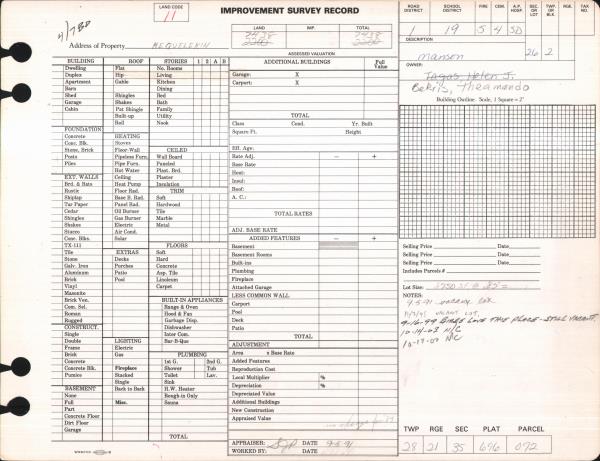 LAND CODE
11
IMPROVEMENT SURVEY RECORD
Address of Property
LAND IMP. TOTAL
ASSESSED VALUATION
ROAD DISTRICT SCHOOL DISTRICT F.D. C.A. A.P. HOSP. SEC. OR LOT TWP. OR BLK RGE. TAX NO.
1 19 5 4 SD
DESCRIPTION
manson 26 2
OWNER:
Tagas Helen J.
Bekris, Theamando
Building Outline: Scale, 1 Square = 2'
BUILDING
Dwelling
Duplex
Apartment
Barn
Shed
Garage
Cabin
FOUNDATION
Concrete
Conc. Blk.
Stone, Brick
Posts
Piles
EXT. WALLS
Brd. & Bats
Rustic
Shiplap
Tar Paper
Cedar
Shingles
Shakes
Stucco
Conc. Blks.
TX-111
Tile
Stone
Galv. Iron
Aluminum
Brick
Vinyl
Masonite
Brick Ven.
Com. Sel.
Roman
Rugged
CONSTRUCT.
Single
Double
Frame
Brick
Concrete
Concrete Blk.
Pumice
BASEMENT
None
Full
Part
Concrete Floor
Dirt Floor
Garage
ROOF
Flat
Hip
Gable
Shingles
Shakes
Pat Shingle
Built-up
Roll
HEATING
Stoves
Floor-Wall
Pipeless Furn.
Pipe Furn.
Hot Water
Ceiling
Heat Pump
Floor Rad.
Base B. Rad.
Panel Rad.
Oil Burner
Gas Burner
Electric
Air Cond.
Solar
EXTRAS
Decks
Porches
Patio
Pool
LIGHTING
Electric
Gas
Fireplace
Stacked
Single
Back to Back
Misc.
STORIES 1 2 A B
No. Rooms
Living
Kitchen
Dining
Bedroom
Bath
Family
Utility
Nook
CEILED
Wall Board
Paneled
Plast. Brd.
Plaster
Insulation
TRIM
Soft
Hardwood
Tile
Marble
Metal
FLOORS
Soft
Hard
Concrete
Asp. Tile
Linoleum
Carpet
BUILT-IN APPLIANCES
Range & Oven
Hood & Fan
Garbage Disp.
Dishwasher
Inter Com.
Bar-B-Que
PLUMBING
1st G. 2nd G.
Shower Tub
Toilet Lav.
Sink
H.W. Heater
Rough-in Only
Sauna
TOTAL
ADDITIONAL BUILDINGS Full Value
Garage: X
Carport: X
TOTAL
Class Cond. Yr. Built
Square Ft. Height
Eff. Age:
Rate Adj. − +
Base Rate
Heat:
Insul:
Roof:
A. C.:
TOTAL RATES
ADJ. BASE RATE
ADDED FEATURES − +
Basement
Basement Rooms
Built-ins
Plumbing
Fireplace
Attached Garage
LESS COMMON WALL
Carport
Pool
Deck
Patio
TOTAL
ADJUSTMENT
Area x Base Rate
Added Features
Reproduction Cost
Local Multiplier %
Depreciation %
Depreciated Value
Additional Buildings
New Construction
Appraised Value
APPRAISER: DATE 9-5-91
WORKED BY: DATE
Selling Price Date
Selling Price Date
Selling Price Date
Includes Parcels #
Lot Size:
NOTES:
9-5-91 vacant lot
VACANT LOT
9-16-99 Birds love this place - still vacant.
10-14-03 N/C
10-17-07 N/C
TWP RGE SEC PLAT PARCEL
28 21 35 696 072